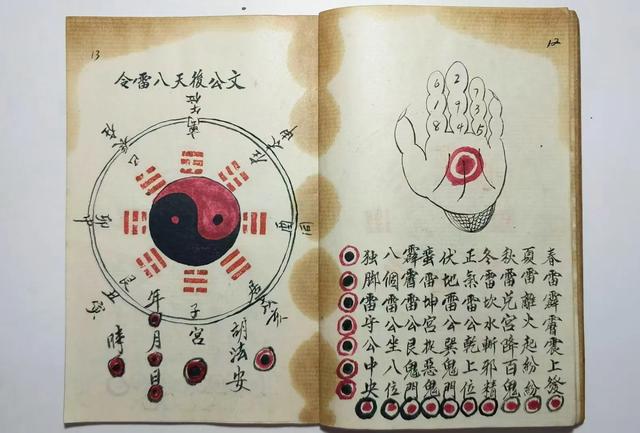 12
6 2 7
1 9 3
8 4 5
春雷霹靂震上發
夏雷離火起紛紛
秋雷兌宮降百鬼
冬雷坎水斬邪精
正氣雷公乾上位
伏地雷公巽鬼門
蛮雷坤宮投惡鬼
霹靂雷公艮鬼門
八個雷公坐八位
独脚雷守公中央
13
文公後天八雷令
卯甲
丑
酉
子宮
胡法安
年月日
時